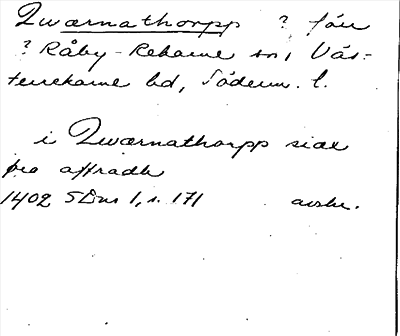 Qwærnathorpp ? förr
? Råby-Rekarne sn, Väs-
terrekarne hd, Söderm. l.
i Qwærnathorpp siæx
øra affradh
1402 SDns 1, s. 171 avskr.